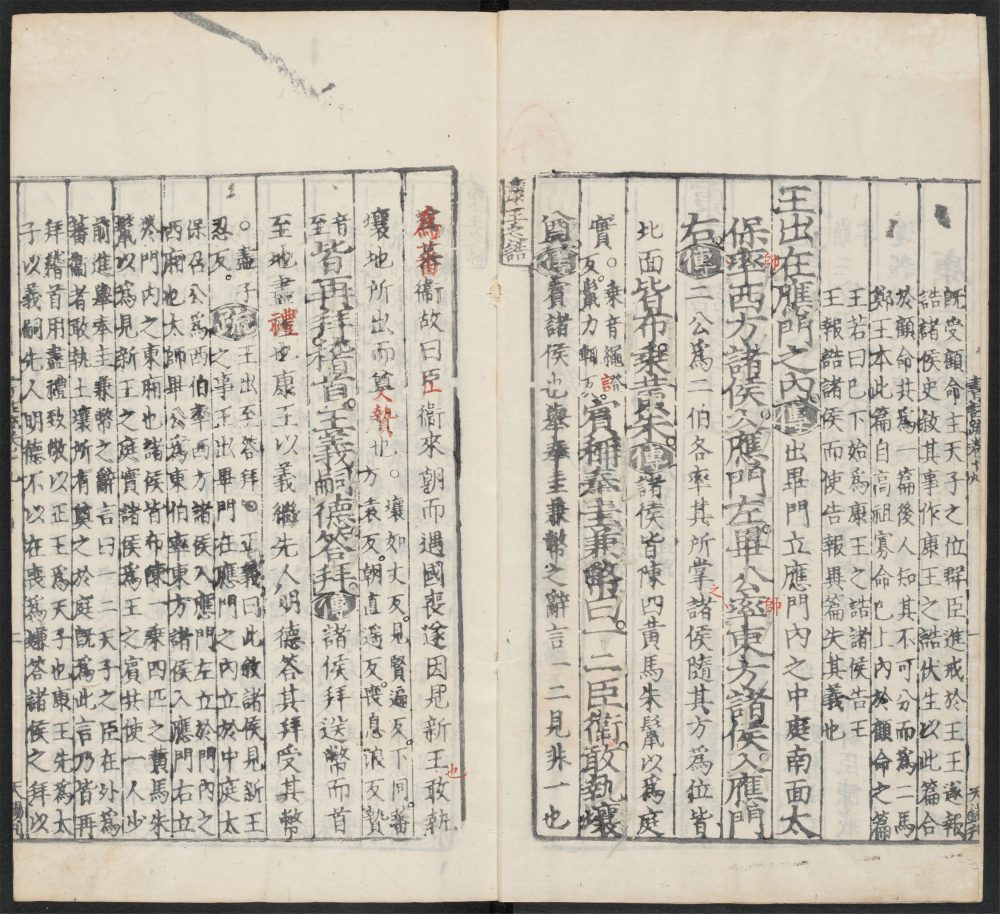 既受顧命主天子之位群臣進戒於王王遂報
誥諸侯史敘其事作康王之誥伏生以此篇合
於顧命共為一篇後人知其不可分而為二馬
鄭王本此篇自高祖寡命已上內於顧命之篇
王若曰已下始為康王之誥諸侯告王
王報誥諸侯而使告報異篇失其義也
王出在應門之內傳出畢門立應門內之中庭南面太
保率西方諸侯入應門左畢公率東方諸侯入應門
右傳二公為二伯各率其所掌諸侯隨其方為位皆
北面皆布乘黃朱傳諸侯皆陳四黃馬朱鬣以為庭
實○乘音繩證反鬣力輒反賓稱奉圭兼幣曰一二臣衛敢執壤
奠傳賓諸侯也舉奉圭兼幣之辭言一二見非一也
康王之誥
為蕃衛故曰臣衛來朝而遇國喪遂因見新王敢執
壤地所出而奠贄也○壤如丈反見賢遍反下同蕃方袁反朝直遙反喪息浪反贄
音至皆再拜稽首王義嗣德答拜傳諸侯拜送幣而首
至地盡禮也康王以義繼先人明德答其拜受其幣
○盡子王出至答拜○正義曰此敘諸侯見新王
忍反疏之事王出畢門在應門之內立於中庭太
保召公為西伯率西方諸侯入應門左立於門內之
西廂也太師畢公為東伯率東方諸侯入應門右立
於門內之東廂也諸侯皆布陳一乘四匹之黃馬朱
鬣以為見新王之庭實諸侯為王之賓共使一人少
前進舉奉圭兼幣之辭言曰一二天子之臣在外為
蕃衛者敢執土壤所有奠之於庭既為此言乃皆再
拜稽首用盡禮致敬以正王為天子也康王先為太
子以義嗣先人明德不以在喪為嫌答諸侯之拜以